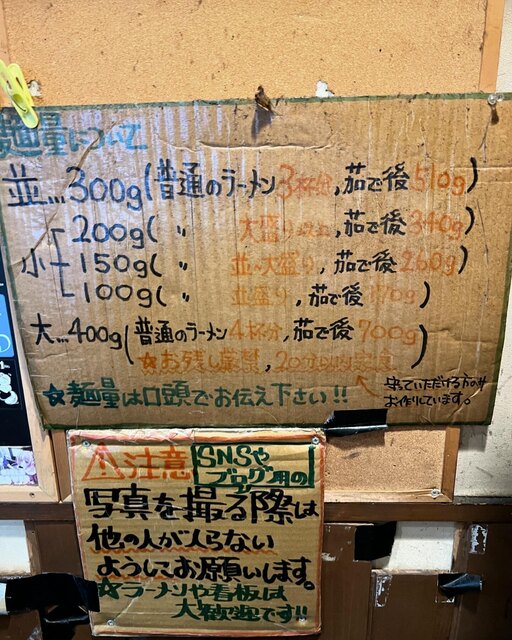 麺量について
並…300g(普通のラーメン3杯分,茹で後510g)
小 200g( 〃 大盛り以上,茹で後340g)
150g( 〃 並~大盛り,茹で後260g)
100g( 〃 並盛り,茹で後170g)
大…400g(普通のラーメン4杯分,茹で後700g)
☆お残し厳禁,20分以内完食
☆麺量は口頭でお伝え下さい!!
守っていただける方のみ
お作りしています。
⚠注意 SNSや
ブログ用の
写真を撮る際は
他の人が入らない
ようにお願いします。
☆ラーメンや看板は
大歓迎です!!